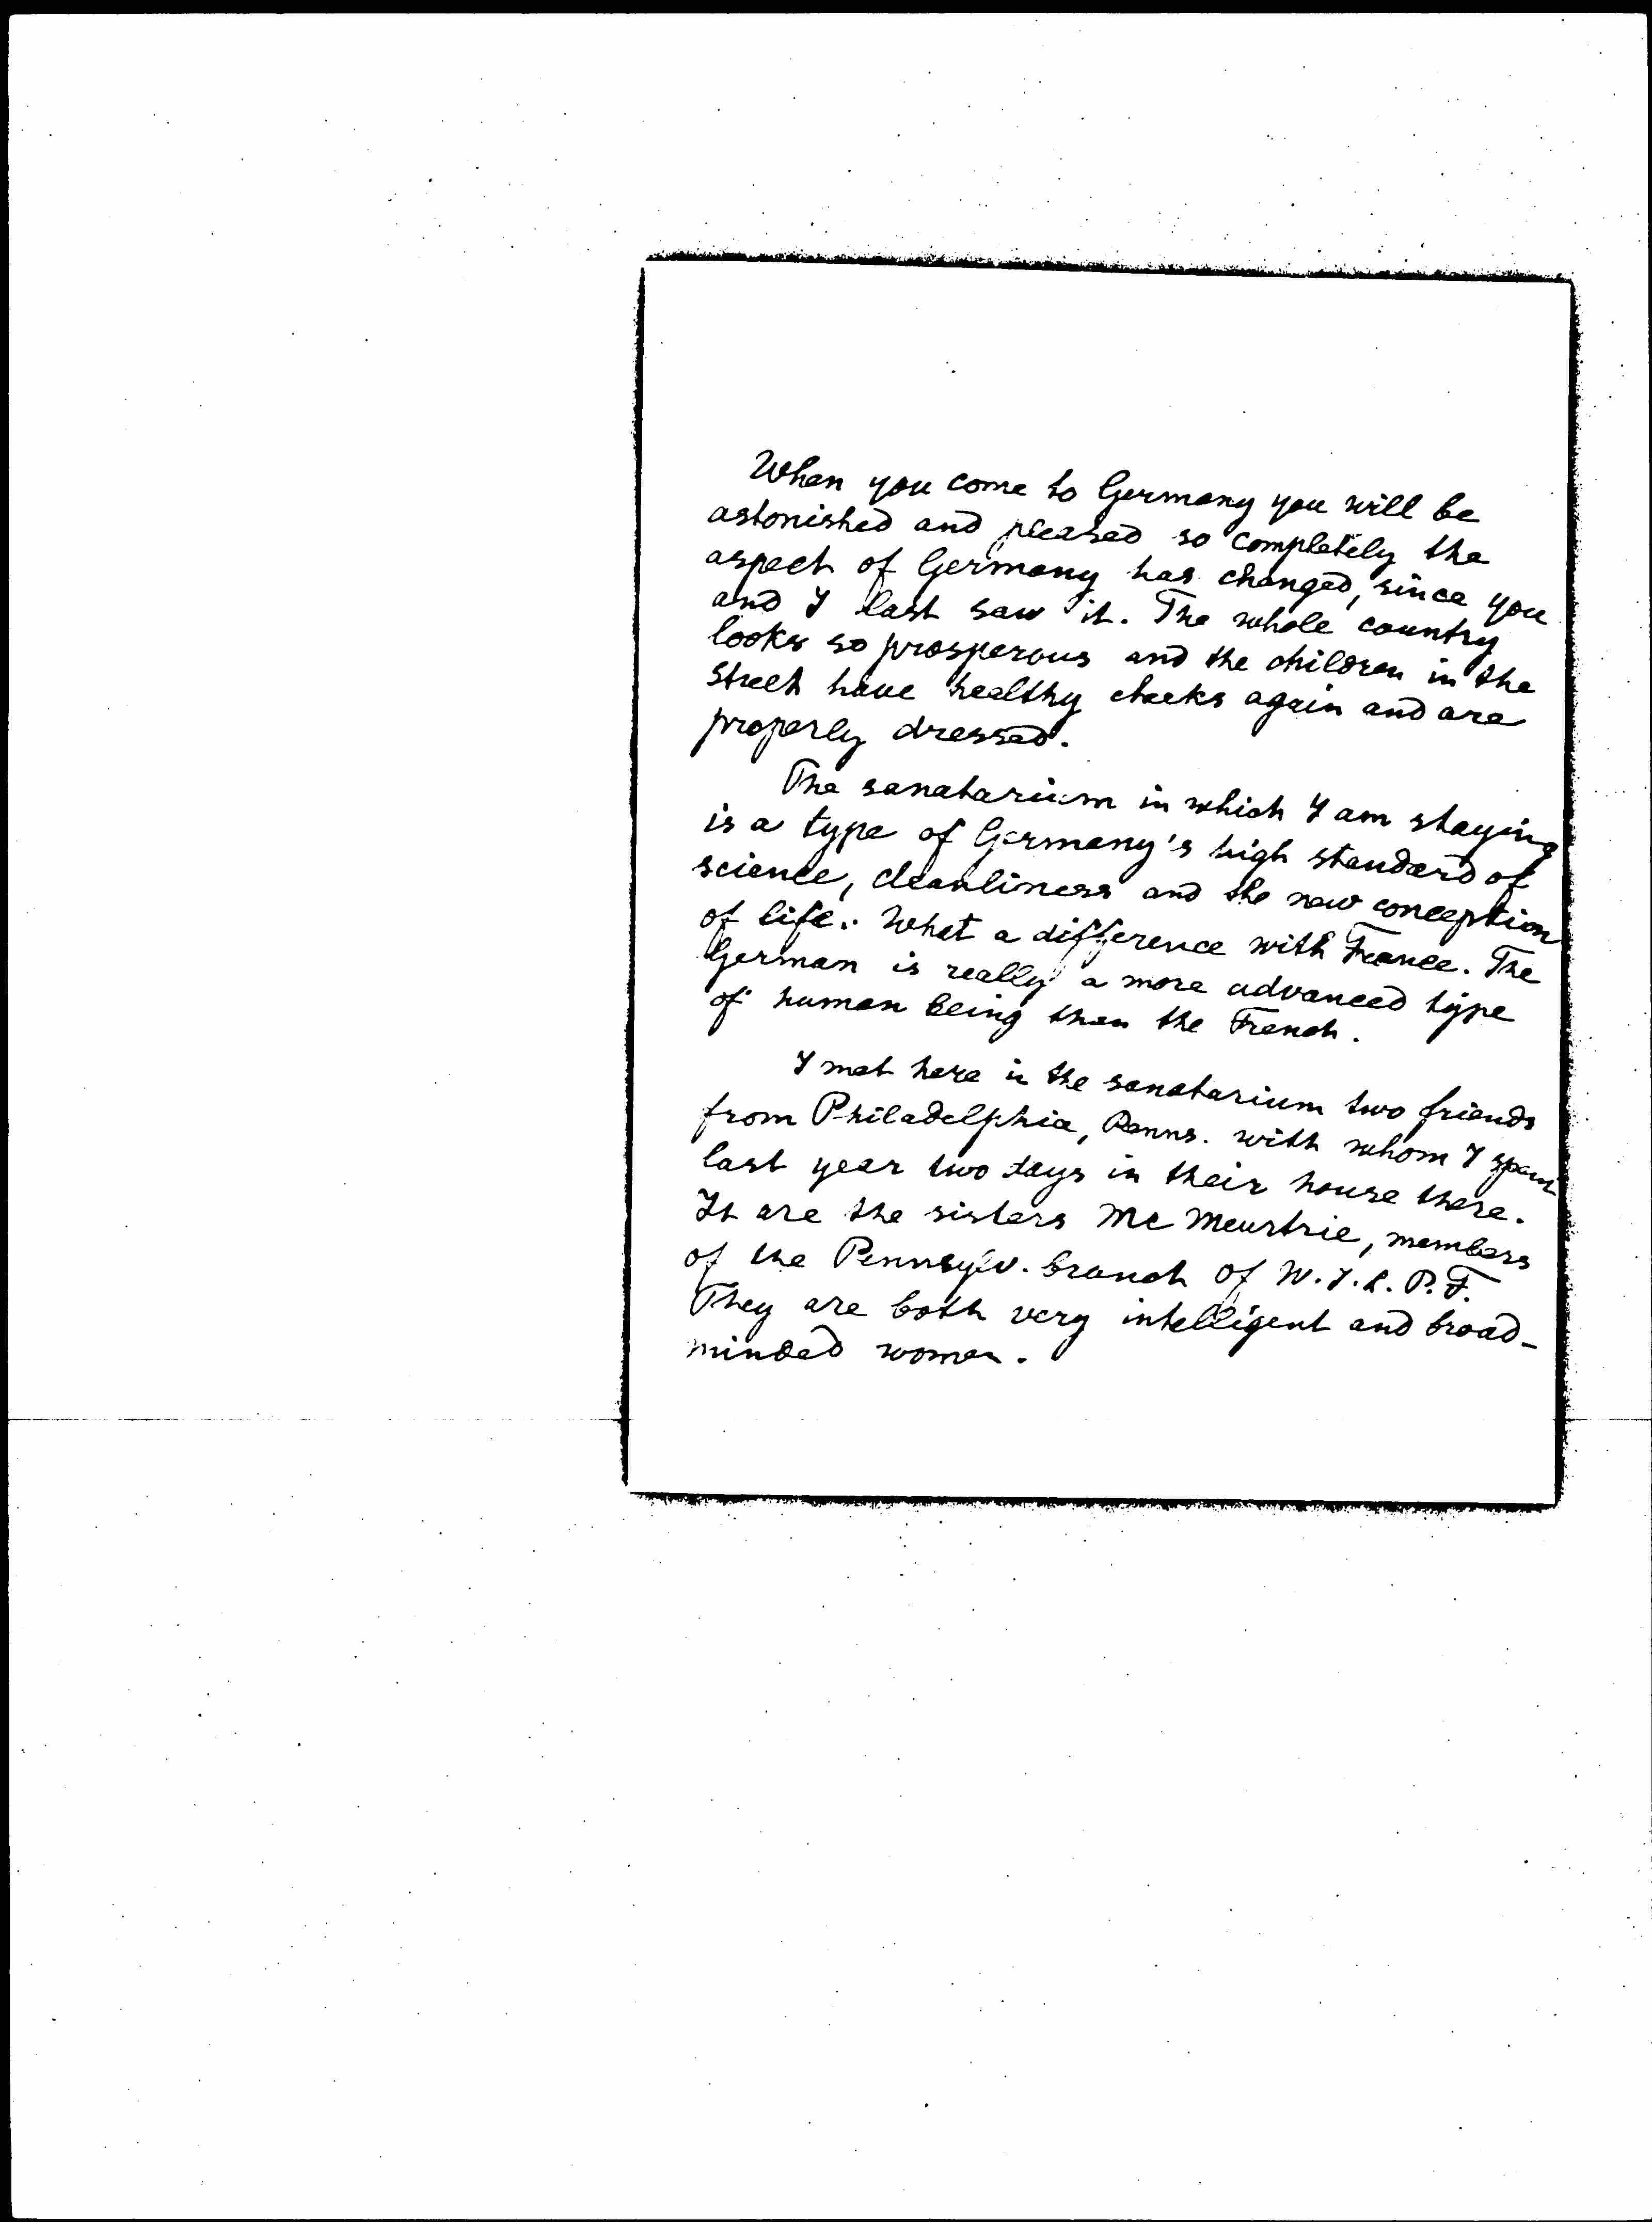 When you come to Germany you will be
astonished and pleased so completely the
aspect of Germany has changed, since you
and I last saw it. The whole country
looks so prosperous and the children in the
street have healthy cheeks again and are
properly dressed.
The sanatarium in which I am staying
is a type of Germany's high standard of
science, cleanliness and the new conception
of life. What a difference with France. The
German is really a more advanced type
of human being than the French.
I met here in the sanatarium two friends
from Philadelphia, Penns. with whom I spent
last year two days in their house there.
It are the sisters Mc Meurtrie, members
of the Pennsylv. branch of W.I.L.P.F.
They are both very intelligent and broad-
minded women.